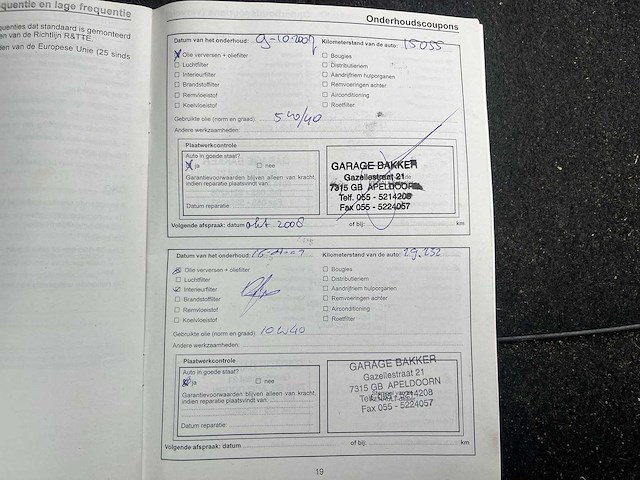 quentie en lage frequentie
quenties dat standaard is gemonteerd
en van de Richtlijn R&TTE.
den van de Europese Unie (25 sinds
Onderhoudscoupons
Datum van het onderhoud: 9-10-2007 Kilometerstand van de auto: 15055
Olie verversen + oliefilter
Luchtfilter
Interieurfilter
Brandstoffilter
Remvloeistof
Koelvloeistof
Bougies
Distributieriem
Aandrijfriem hulporganen
Remvoeringen achter
Airconditioning
Roetfilter
Gebruikte olie (norm en graad): 5W/40
Andere werkzaamheden:
Plaatwerkcontrole
Auto in goede staat?
ja nee
Garantievoorwaarden blijven alleen van kracht,
indien reparatie plaatsvindt van:
Datum reparatie:
GARAGE BAKKER
Gazellestraat 21
7315 GB APELDOORN
Telf. 055 - 5214208
Fax 055 - 5224057
Volgende afspraak: datum okt 2008 of bij: km
Datum van het onderhoud: Kilometerstand van de auto: 29.232
Olie verversen + oliefilter
Luchtfilter
Interieurfilter
Brandstoffilter
Remvloeistof
Koelvloeistof
Bougies
Distributieriem
Aandrijfriem hulporganen
Remvoeringen achter
Airconditioning
Roetfilter
Gebruikte olie (norm en graad): 10W40
Andere werkzaamheden:
Plaatwerkcontrole
Auto in goede staat?
ja nee
Garantievoorwaarden blijven alleen van kracht,
indien reparatie plaatsvindt van:
Datum reparatie:
GARAGE BAKKER
Gazellestraat 21
7315 GB APELDOORN
Telf. 055 - 5214208
Fax 055 - 5224057
Volgende afspraak: datum of bij: km
19